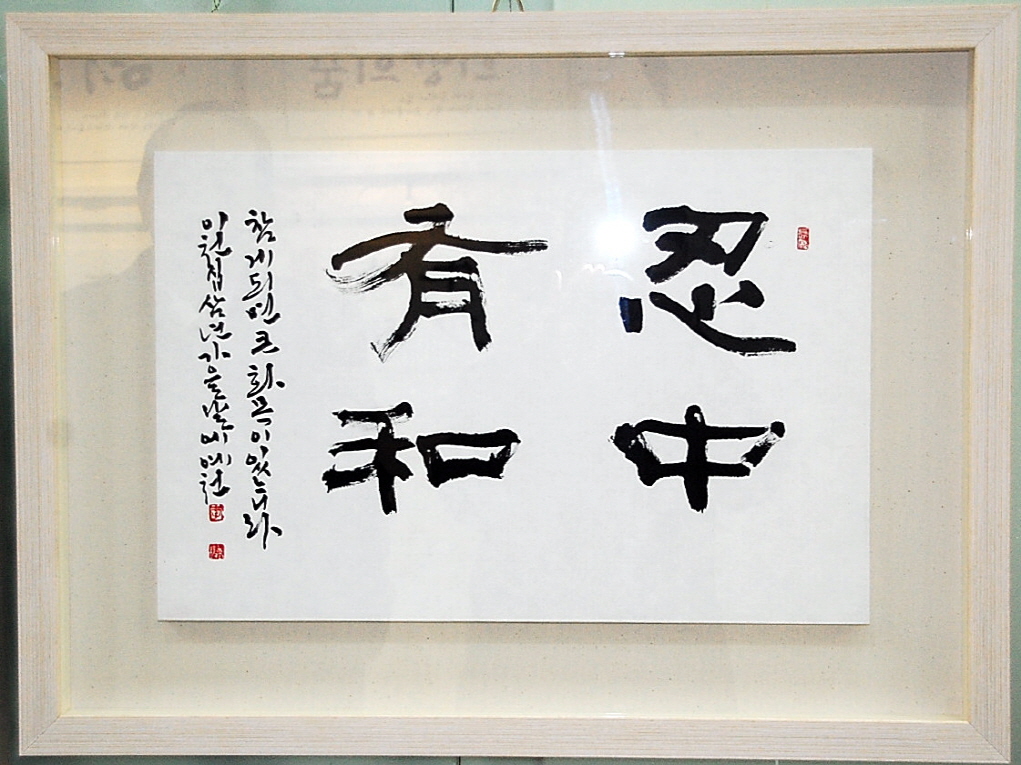 忍中
有和
참게되면 큰 화목이 있느니라
이천십삼년 가을날에